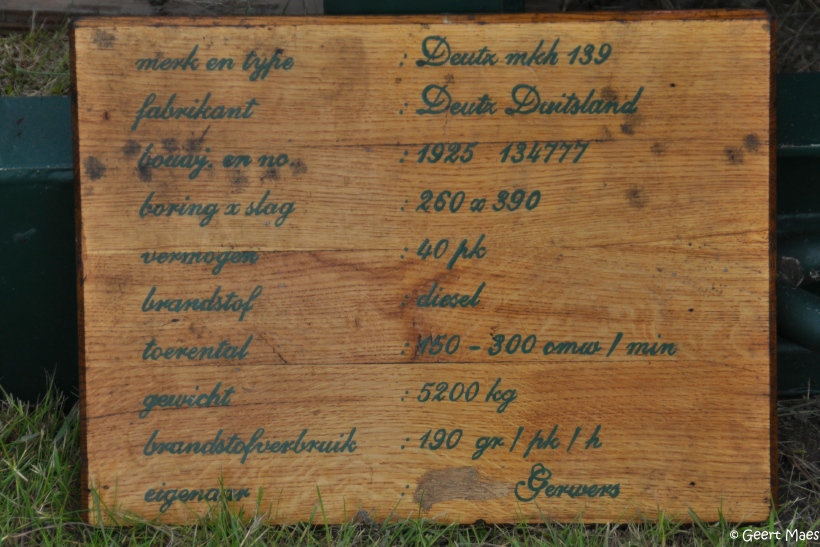 merk en type : Deutz mkh 139
fabrikant : Deutz Duitsland
bouwj. en no. : 1925 134777
boring x slag : 260 x 390
vermogen : 40 pk
brandstof : diesel
toerental : 150 - 300 omw / min
gewicht : 5200 kg
brandstofverbruik : 190 gr / pk / h
eigenaar : Gerwers
© Geert Maes